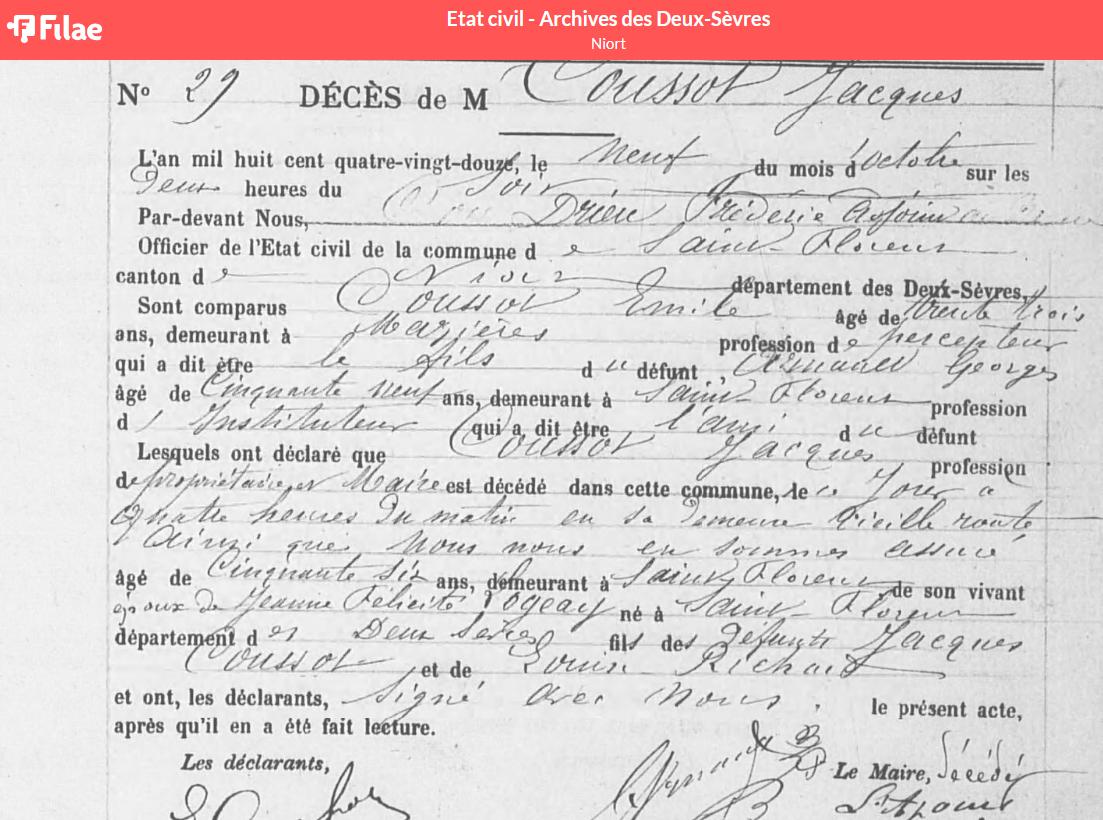 Filae
Etat civil - Archives des Deux-Sèvres
Niort
No 29 DÉCÈS de M Coussot Jacques
L'an mil huit cent quatre-vingt-douze, le neuf du mois d'octobre sur les
Deux heures du Soir
Par-devant Nous, Drieu Frédéric adjoint
Officier de l'Etat civil de la commune de Saint Florent
canton de Niort département des Deux-Sèvres,
Sont comparus Coussot Emile âgé de trente trois
ans, demeurant à Mazières profession de percepteur
qui a dit être le fils du défunt, Armand Georges
âgé de Cinquante neuf ans, demeurant à Saint Florent profession
d'Instituteur qui a dit être l'ami du défunt
Lesquels ont déclaré que Coussot Jacques profession
de propriétaire et Maire est décédé dans cette commune, le ce Jour à
Quatre heures du matin en sa demeure Vieille route
Ainzi que nous nous en sommes assuré
âgé de Cinquante six ans, demeurant à Saint Florent de son vivant
époux de Jeanne Félicité Pogeay né à Saint Florent
département des Deux Sèvres fils des défunts Jacques
Coussot et de Louise Richard
et ont, les déclarants, Signé avec Nous. le présent acte,
après qu'il en a été fait lecture.
Les déclarants,
Le Maire, décédé
L'Adjoint